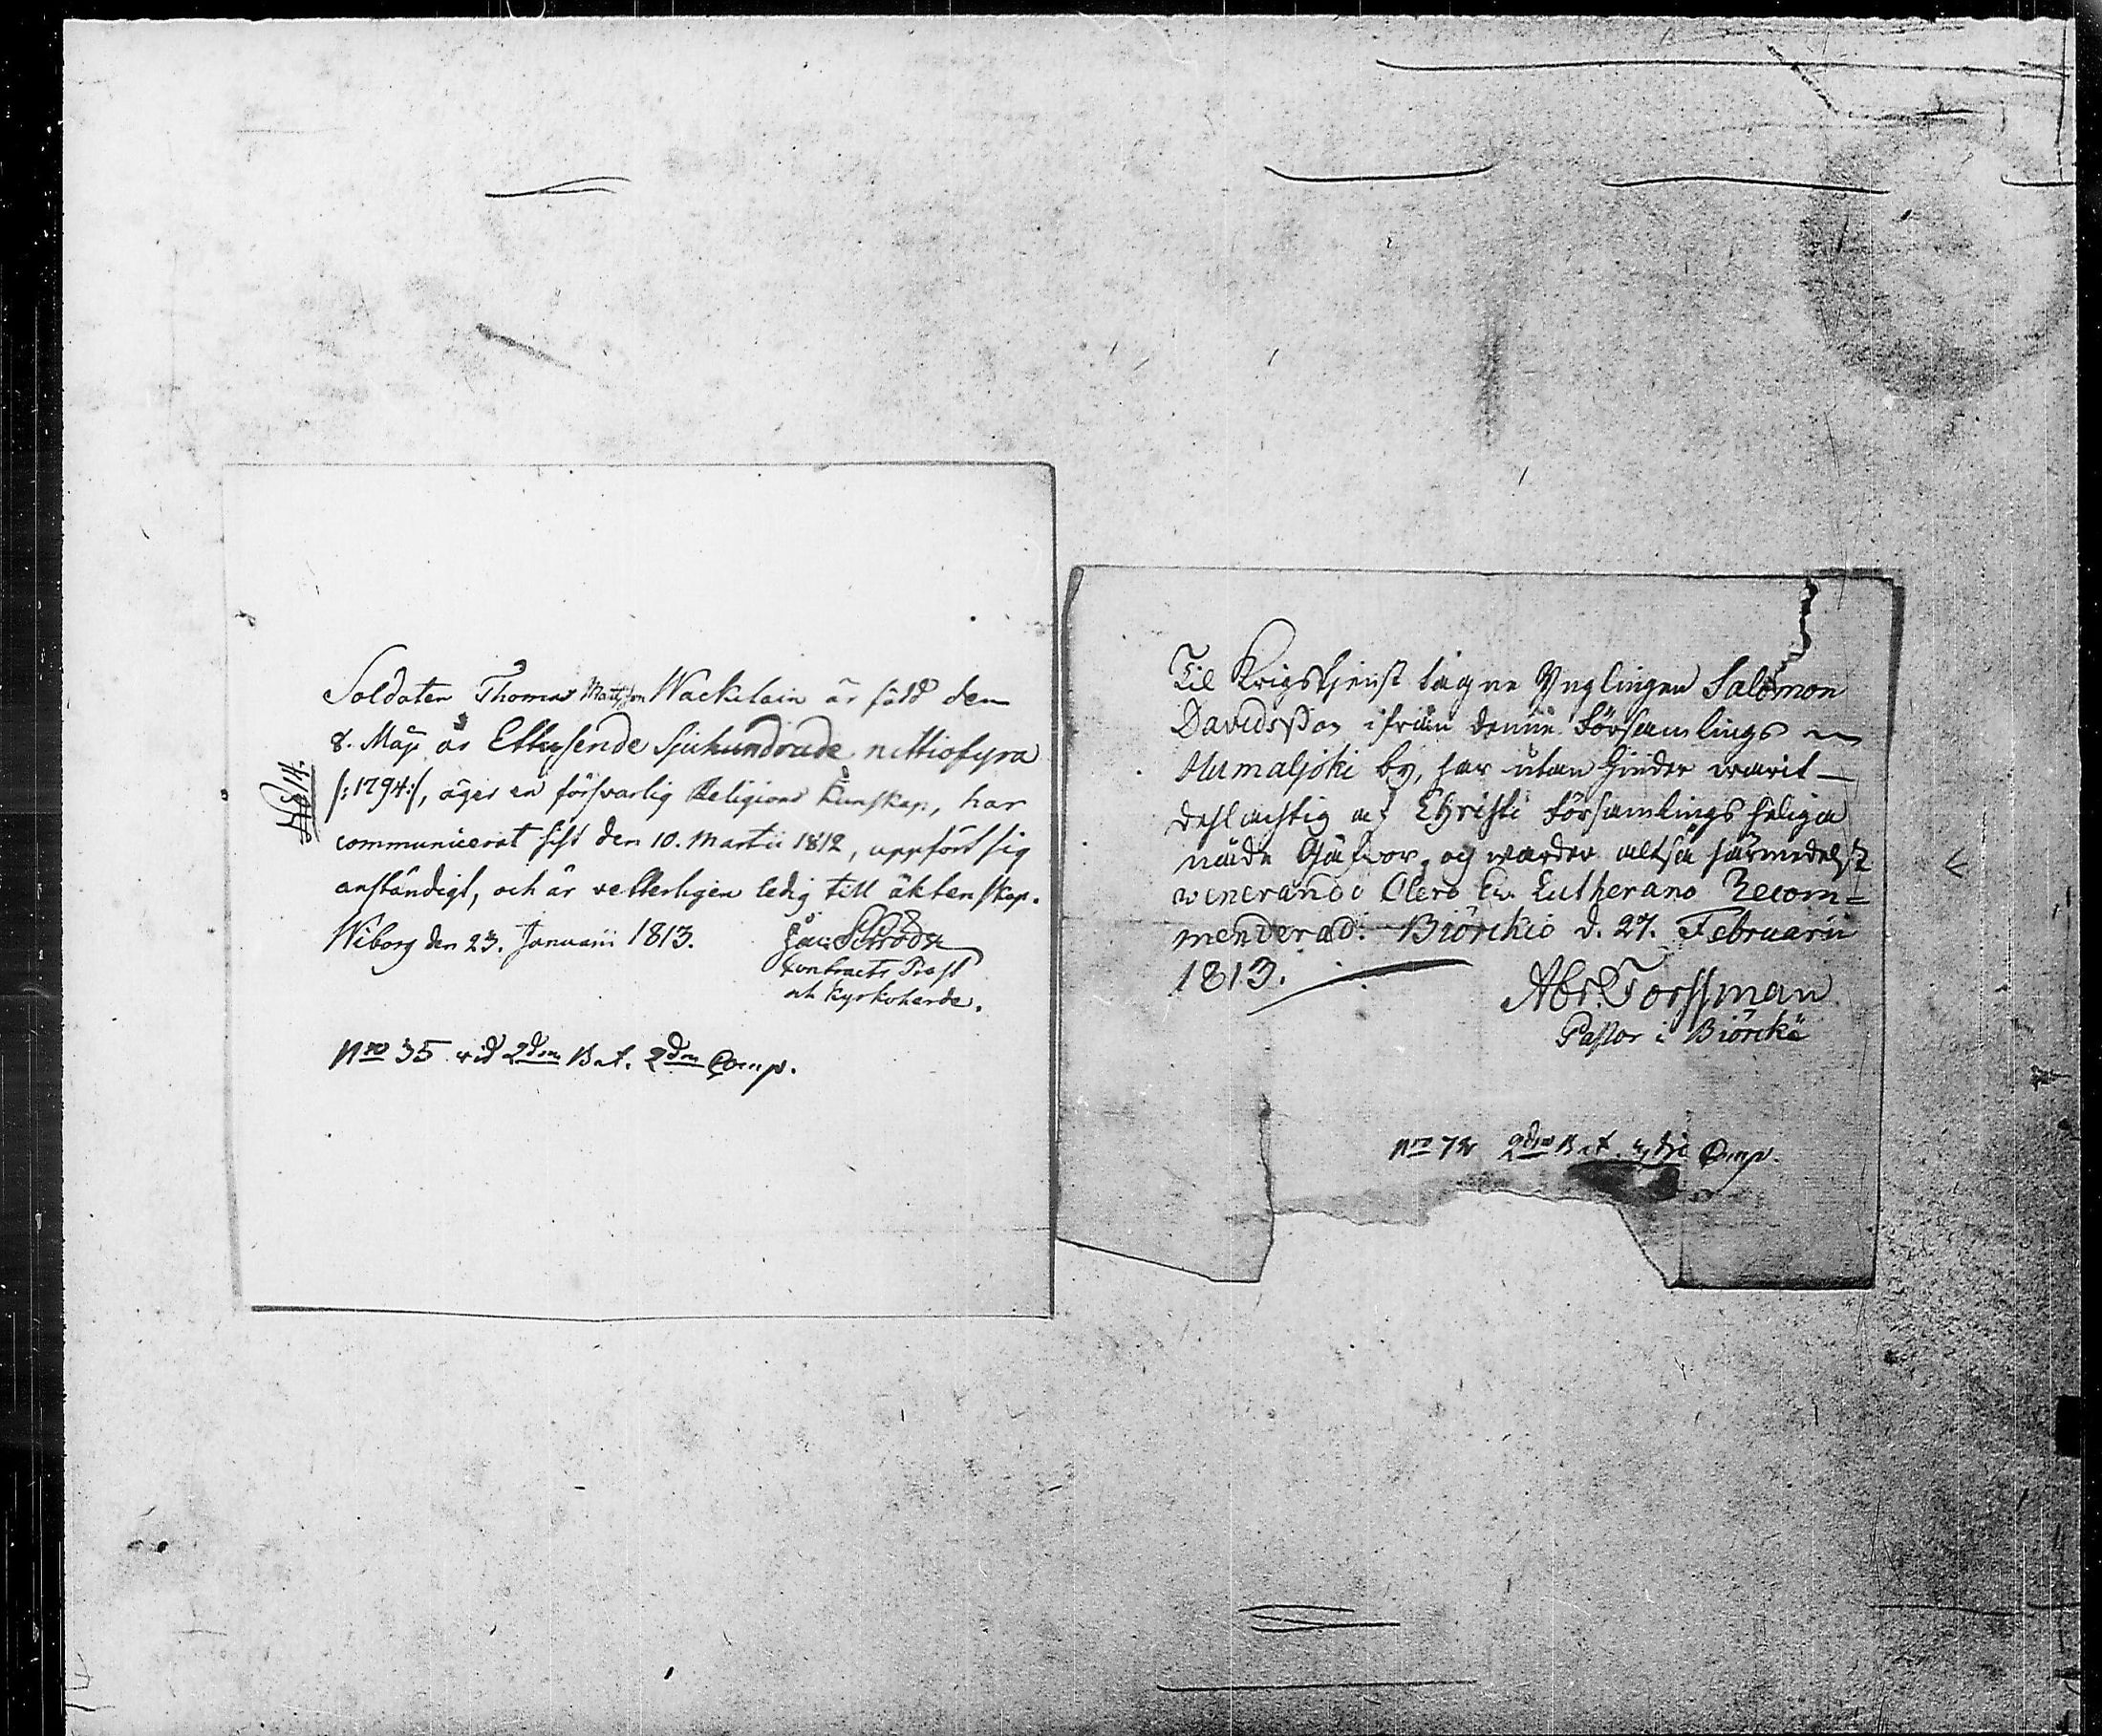 Soldaten Thomas Mattsson Wackelain är född den
8. Maji år Ettusende Sjuhundrade nittiofyra
/:1794:/, äger en försvarlig Religions Kunskap, har
communicerat sist den 10. Martii 1812, uppfört sig
anständigt, och är vetterligen ledig till äktenskap.
Wiborg den 23. Januarii 1813.
Jac. Schröder
Contracts Prost
och Kyrkoherde.
Nro 35 vid 2dra Bat. 2dra Comp.
Til Krigstjenst tagne Ynglingen Salomon
Davidsson ifrån denne Församlings
Humaljoki by, har utan hinder warit
deslachtig af Christi Församlings heliga
nåde Gåfwor, och warder altså härmedelst
venerando Clero Ev. Lutherano Recom-
menderad. Biörckiö d. 27. Februarii
1813.
Abr. Forssman
Pastor i Biörckö
Nro 72 2dra Bat. Comp.